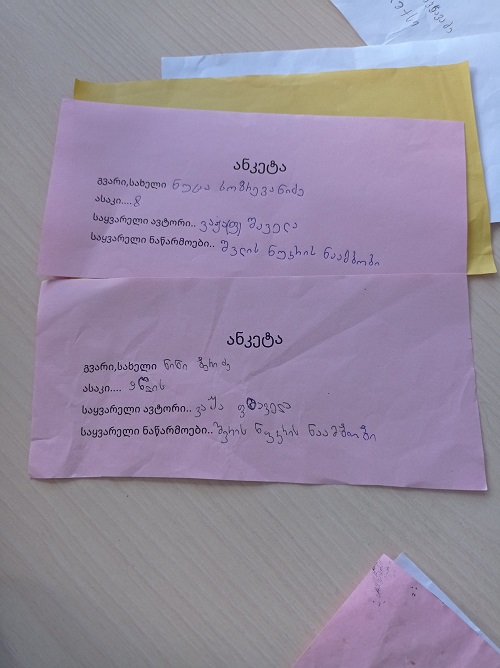 ანკეტა
გვარი,სახელი ნუცა სოზრევანიძე
ასაკი....8
საყვარელი ავტორი.. ვაჟაფშაველა
საყვარელი ნაწარმოები.. შვლის ნუკრის ნაამბობი
ანკეტა
გვარი,სახელი ნინი ბერიძე
ასაკი.... 9წლის
საყვარელი ავტორი.. ვაჟა ფშაველა
საყვარელი ნაწარმოები.. შვრის ნუკრის ნაამბობი